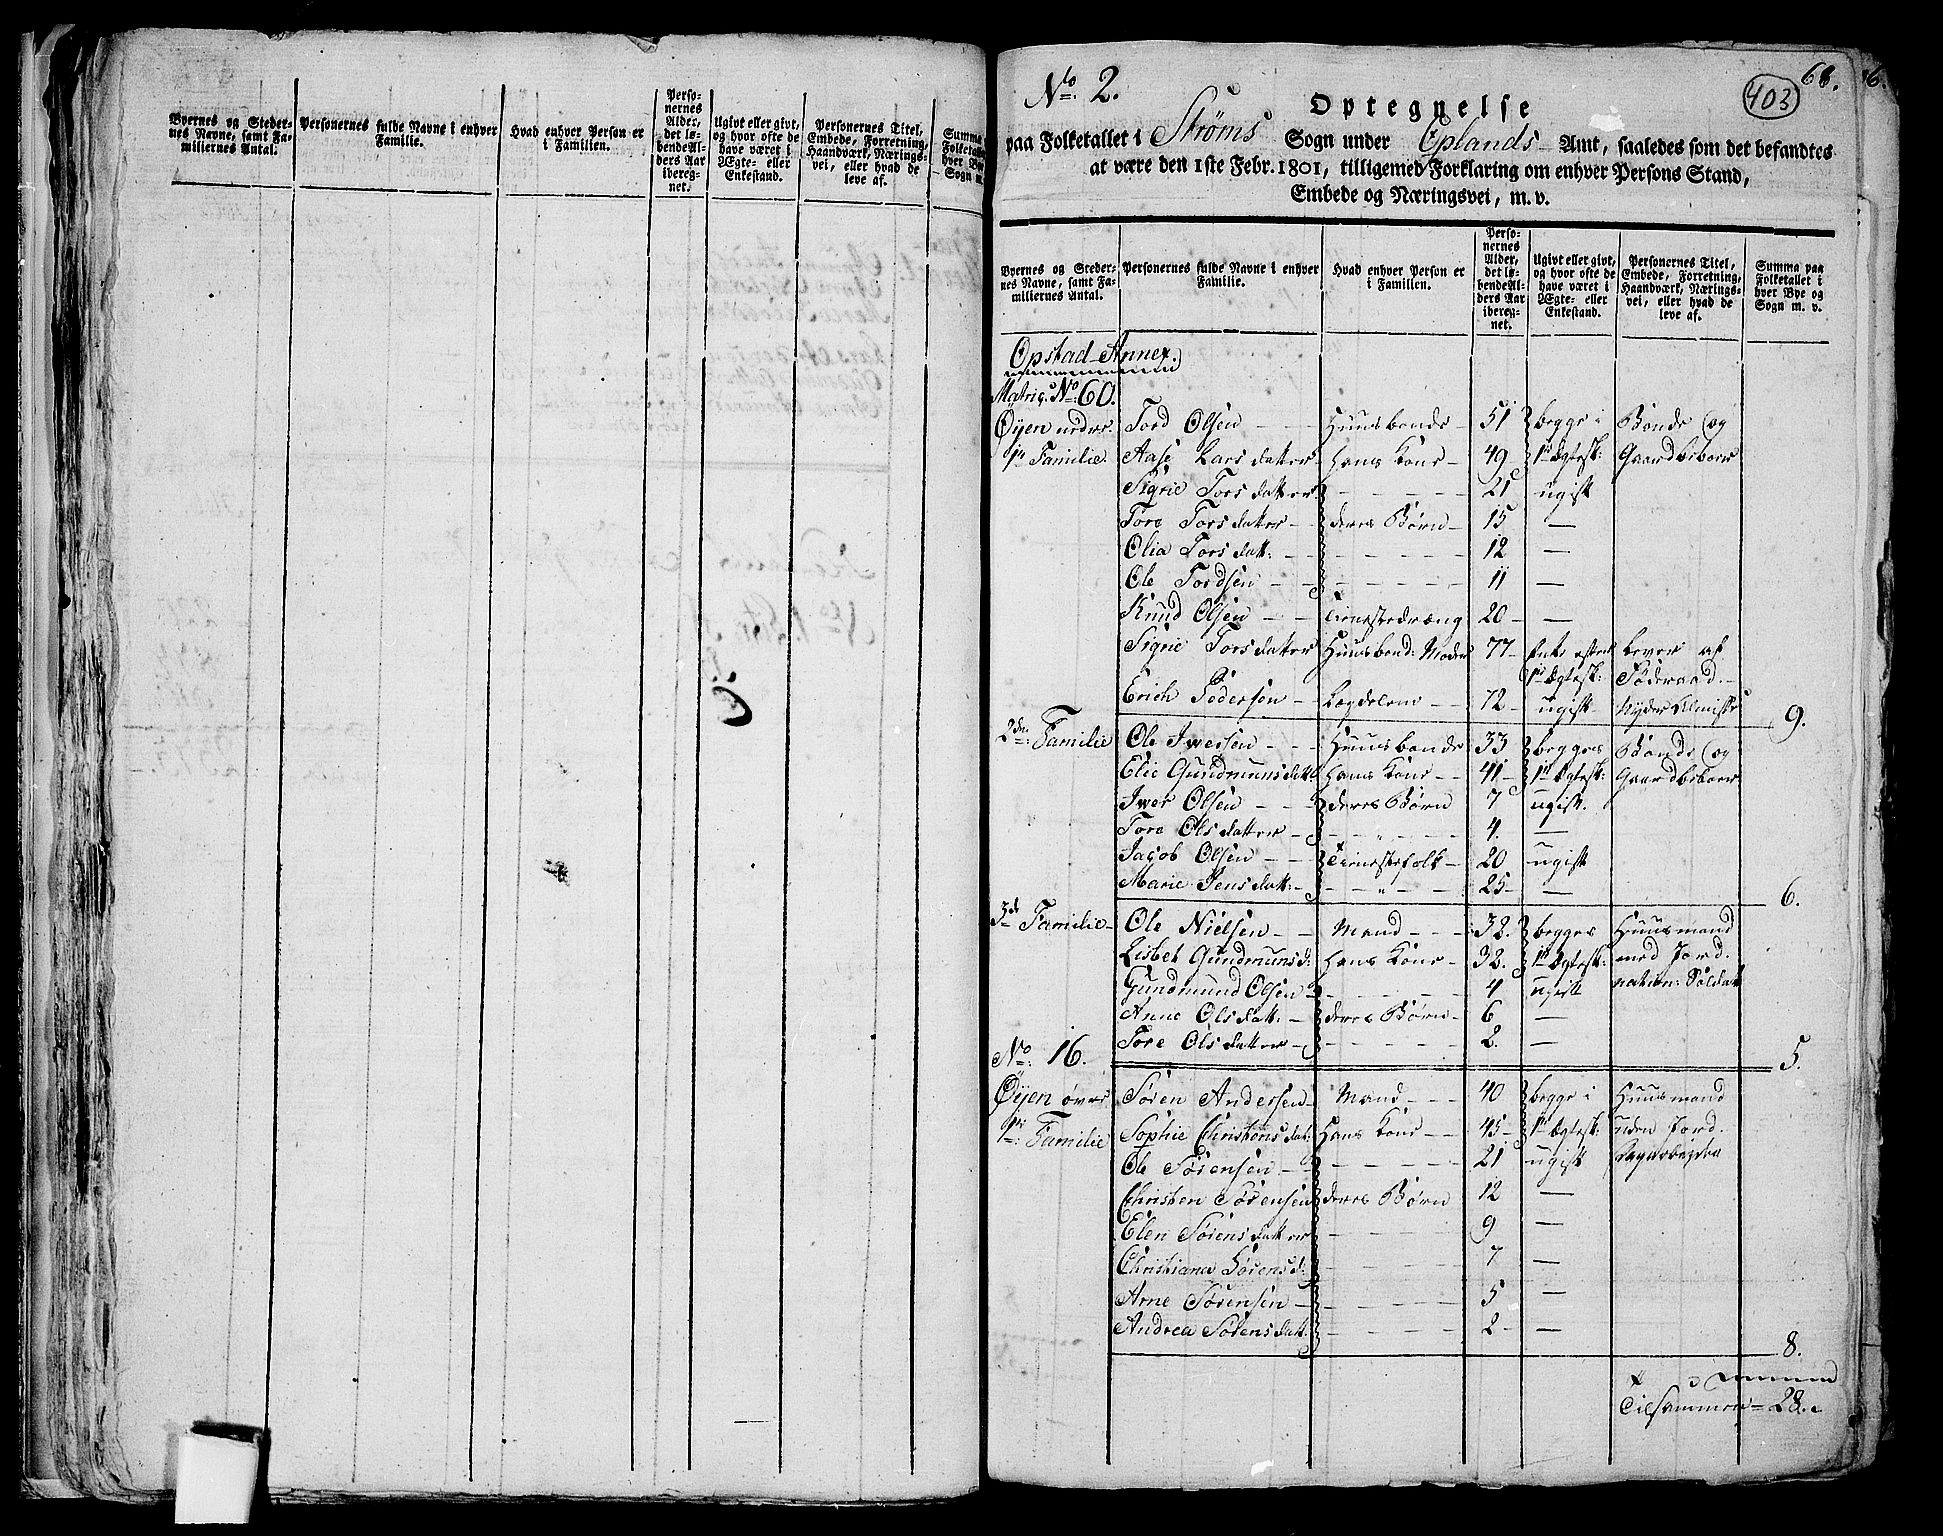 Byernes og Steder-
nes Navne, samt Fa-
miliernes Antal.
Personernes fulde Navne i enhver
Familie.
Hvad enhver Person er
i Familien.
Perso-
nernes
Alder,
det lø-
bende Al-
ders Aar
iberegnet.
Ugivt eller givt,
og hvor ofte de
have været i
Ægte- eller
Enkestand.
Personernes Titel,
Embede, Forretning,
Haandværk, Nærings-
vei, eller hvad de
leve af.
Summa
Folketal
hver By
Sogn m.
No. 2.
403
68.
6.
Optegnelse
paa Folketallet i Strøms Sogn under Oplands Amt, saaledes som det befandtes
at være den 1ste Febr. 1801, tilligemed Forklaring om enhver Persons Stand,
Embede og Næringsvei, m. v.
Byernes og Steder-
nes Navne, samt Fa-
miliernes Antal.
Personernes fulde Navne i enhver
Familie.
Hvad enhver Person er
i Familien.
Perso-
nernes
Alder,
det lø-
bende Al-
ders Aar
iberegnet.
Ugivt eller givt,
og hvor ofte de
have været i
Ægte- eller
Enkestand.
Personernes Titel,
Embede, Forretning,
Haandværk, Nærings-
vei, eller hvad de
leve af.
Summa paa
Folketallet i
hver Bye og
Sogn m. v.
Opstad Annex.
Matric. No. 60.
Øyen neder Tord Olsen - - - Huusbonde - 51 begge i Bonde og
1te Familie. Aase Larsdatter - hans Kone - 49 1te Ægtesk: Gaardbeboer
Sigrie Torsdatter - - - - 21 ugift
Tore Torsdatter - - deres Børn - 15 —
Olia Torsdatt: - - - - - 12 —
Ole Tordsen - - - - - 11 —
Knud Olsen - - tienestedræng 20 - —
Sigrie Torsdatter Huusbond: Moder 77 - Enke efter Lever af
1te Ægtesk: Føderaad.
Erich Pedersen - Lægdslem - - 72 - ugift - Nyder Almisse 9.
2den Familie Ole Iwersen - - - Huusbonde 33 begges Bonde og
Elie Gundmunsdatt: hans Kone - - 41 - 1te Ægtesk: Gaardbeboer
Iwer Olsen - - - deres Børn 7 ugift.
Tore Olsdatter - - - - - 4. —
Jacob Olsen - - tienestefolk - 20 ugift
Marie Jensdatt: - - - - 25 - — 6.
3de Familie - Ole Nielsen - - Mand - - - 32. begges Huusmand
Lisbet Gundmunsd: hans Kone - 32. 1te Ægtesk: med Jord.
Gundmund Olsen - - - - - 4 ugift nation: Soldat
Anne Olsdatt: - - deres Børn - 6 —
Tore Olsdatter - - - - - 2. — 5.
No. 16.
Øyen øver Søren Andersen - Mand - - - 40 begge i Huusmand
1te Familie Sophie Christensdat: hans Kone - - 45 - 1te Ægtesk: uden Jord.
Ole Sørensen - - 21 ugift
Christen Sørensen deres Børn 12 —
Elen Sørensdatter 9 —
Christiana Sørensd: - - - - 7 —
Arne Sørensen - - - - - 5 —
Andrea Sørensdatt: - - - - 2 - — 8.
Tilsammen - 28.